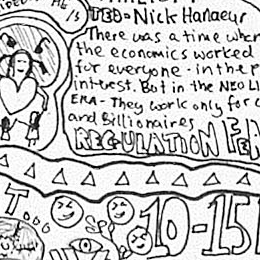 TED - Nick Hanaeur
There was a time when
the economics worked
for everyone - in the p
intrest. But in the NEO LI
ERA - They work only for
and Billionaires
REGULATION
10-15